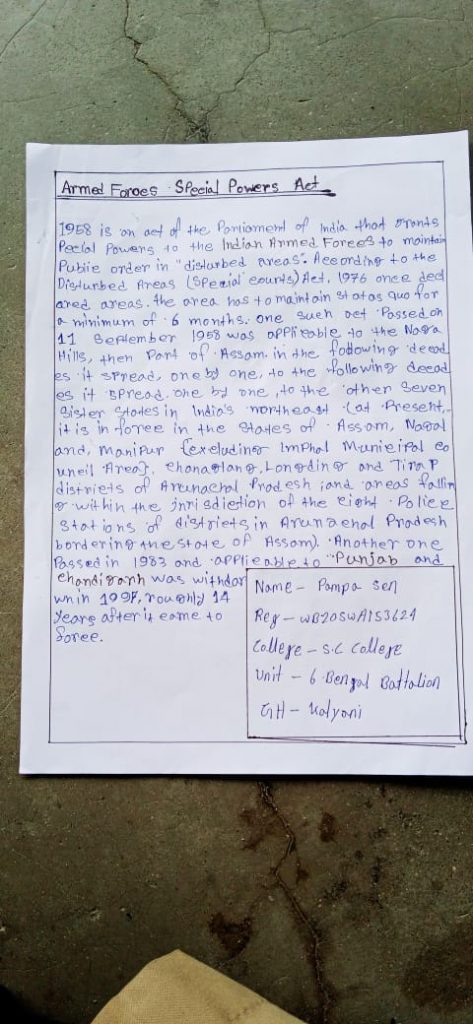 Armed Foroes Special Powers Act
1958 is an act of the Parliament of India that grants
Pecial Powers to the Indian Armed Forces to maintain
Public order in "disturbed areas". According to the
Disturbed Areas (Special courts) Act, 1976 once decl
ared areas. the area has to maintain status quo for
a minimum of 6 months. one such act Passed on
11 September 1958 was applicable to the Naga
Hills, then Part of Assam. in the following decad
es it spread, one by one, to the following decad
es it spread. one by one, to the other Seven
Sister States in India's northeast (at Present,
it is in force in the States of Assam, Nagal
and, Manipur {excluding Imphal Municipal co
uncil Area}, Changlang, Longding and Tirap
districts of Arunachal Pradesh, and areas fallin
g within the jurisdiction of the eight Police
Stations of districts in Arunachal Pradesh
bordering the state of Assam). Another one
Passed in 1983 and applicable to Punjab and
Chandigarh was withdar
wn in 1997, roughly 14
Years after it came to
force.
Name - Pampa Sen
Reg - WB20SWA153624
College - S.C College
Unit - 6 Bengal Battalion
GH - Kalyani